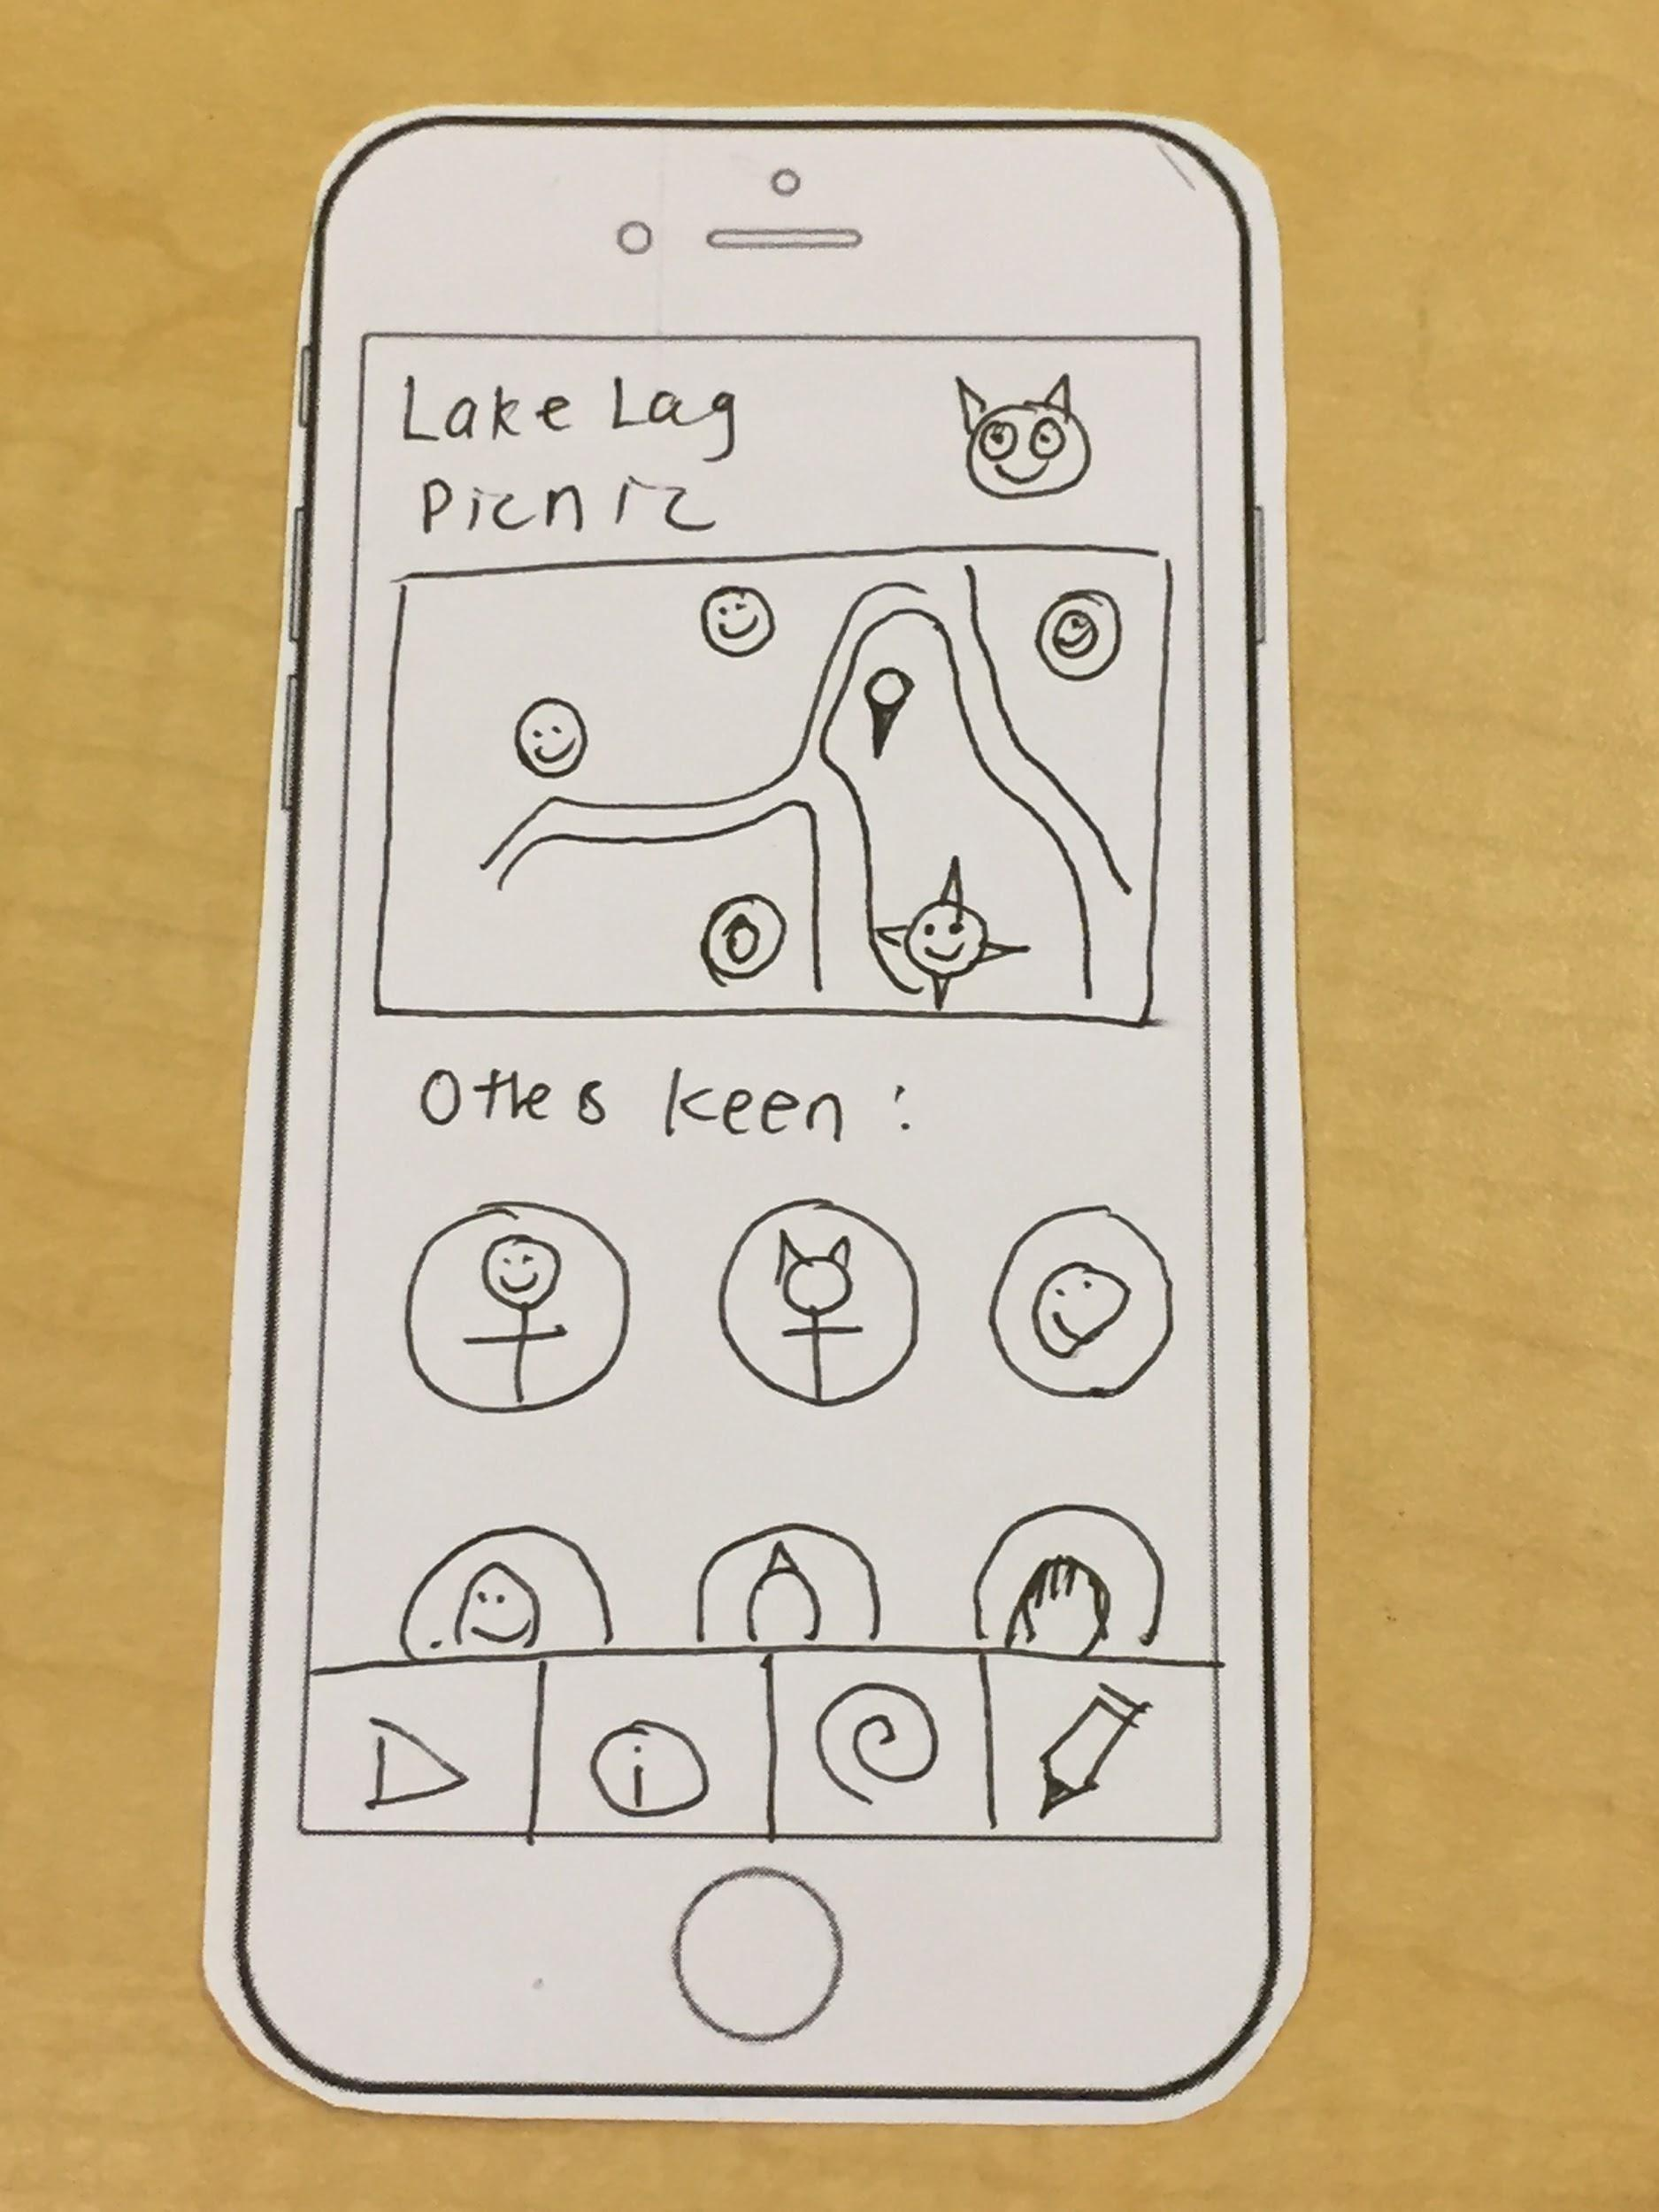 Lake Lag
Picnic
Othes keen :
i